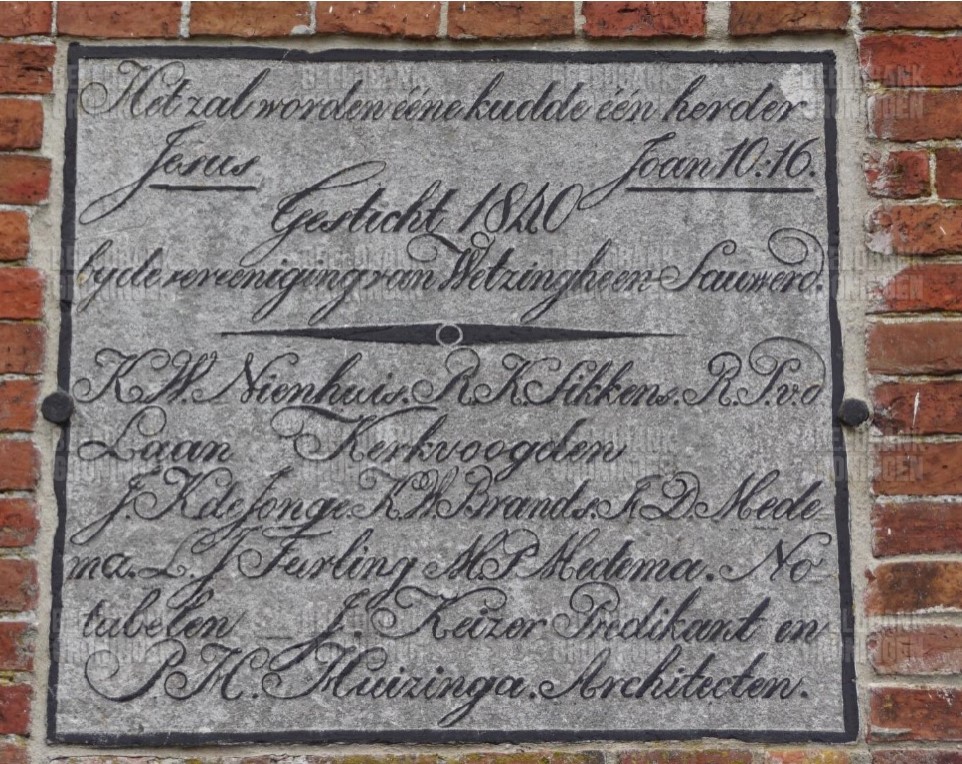 Het zal worden ééne kudde één herder
Jesus Joan 10:16.
Gesticht 1840
by de vereeniging van Wetzingheen Sauwerd.
K.W. Nienhuis. R.K. Sikkens. R.P.v.d
Laan Kerkvoogden
J.K de Jonge. K.W. Brands. K.D. Mede-
ma. L.J Furling M.P Medema. No-
tabelen J. Keizer Predikant en
P.H. Huizinga. Architecten.